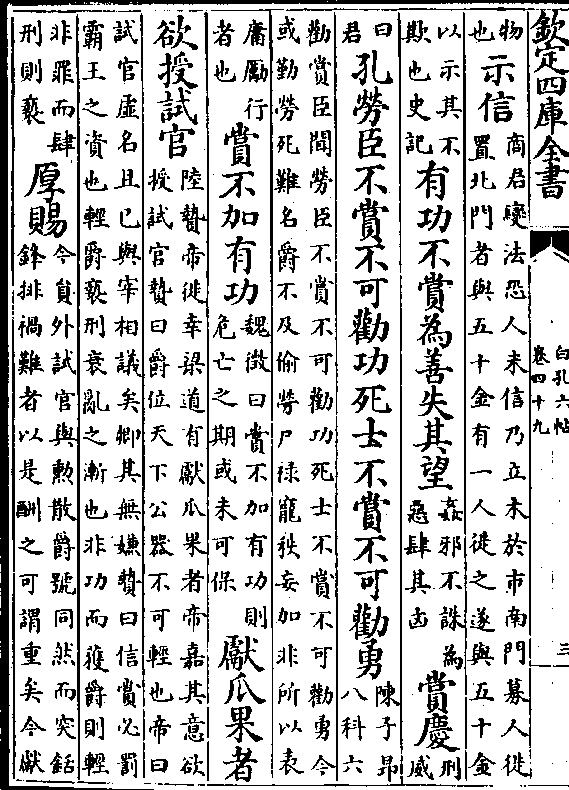 欽定四庫全書
白孔六帖
卷四十九
三
物
也
示信
商君變法恐人未信乃立木於市南門募人徙
置北門者與五十金有一人徙之遂與五十金
以示其不
欺也史記
有功不賞為善失其望
姦邪不誅為
惡肆其凶
賞慶
刑
威
曰
君
孔勞臣不賞不可勸功死士不賞不可勸勇
陳子昂
八科六
勸賞臣聞勞臣不賞不可勸功死士不賞不可勸勇今
或勤勞死難名爵不及偷勞尸祿寵秩妄加非所以表
庸勵行
者也
賞不加有功
魏徵曰賞不加有功則
危亡之期或未可保
獻瓜果者
欲授試官
陸贄帝徙幸梁道有獻瓜果者帝嘉其意欲
授試官贄曰爵位天下公器不可輕也帝曰
試官虛名且已與宰相議矣卿其無嫌贄曰信賞必罰
霸王之資也輕爵褻刑衰亂之漸也非功而獲爵則輕
非罪而肆
刑則褻
厚賜
今員外試官與勲散爵號同然而突銛
鋒排禍難者以是酬之可謂重矣今獻